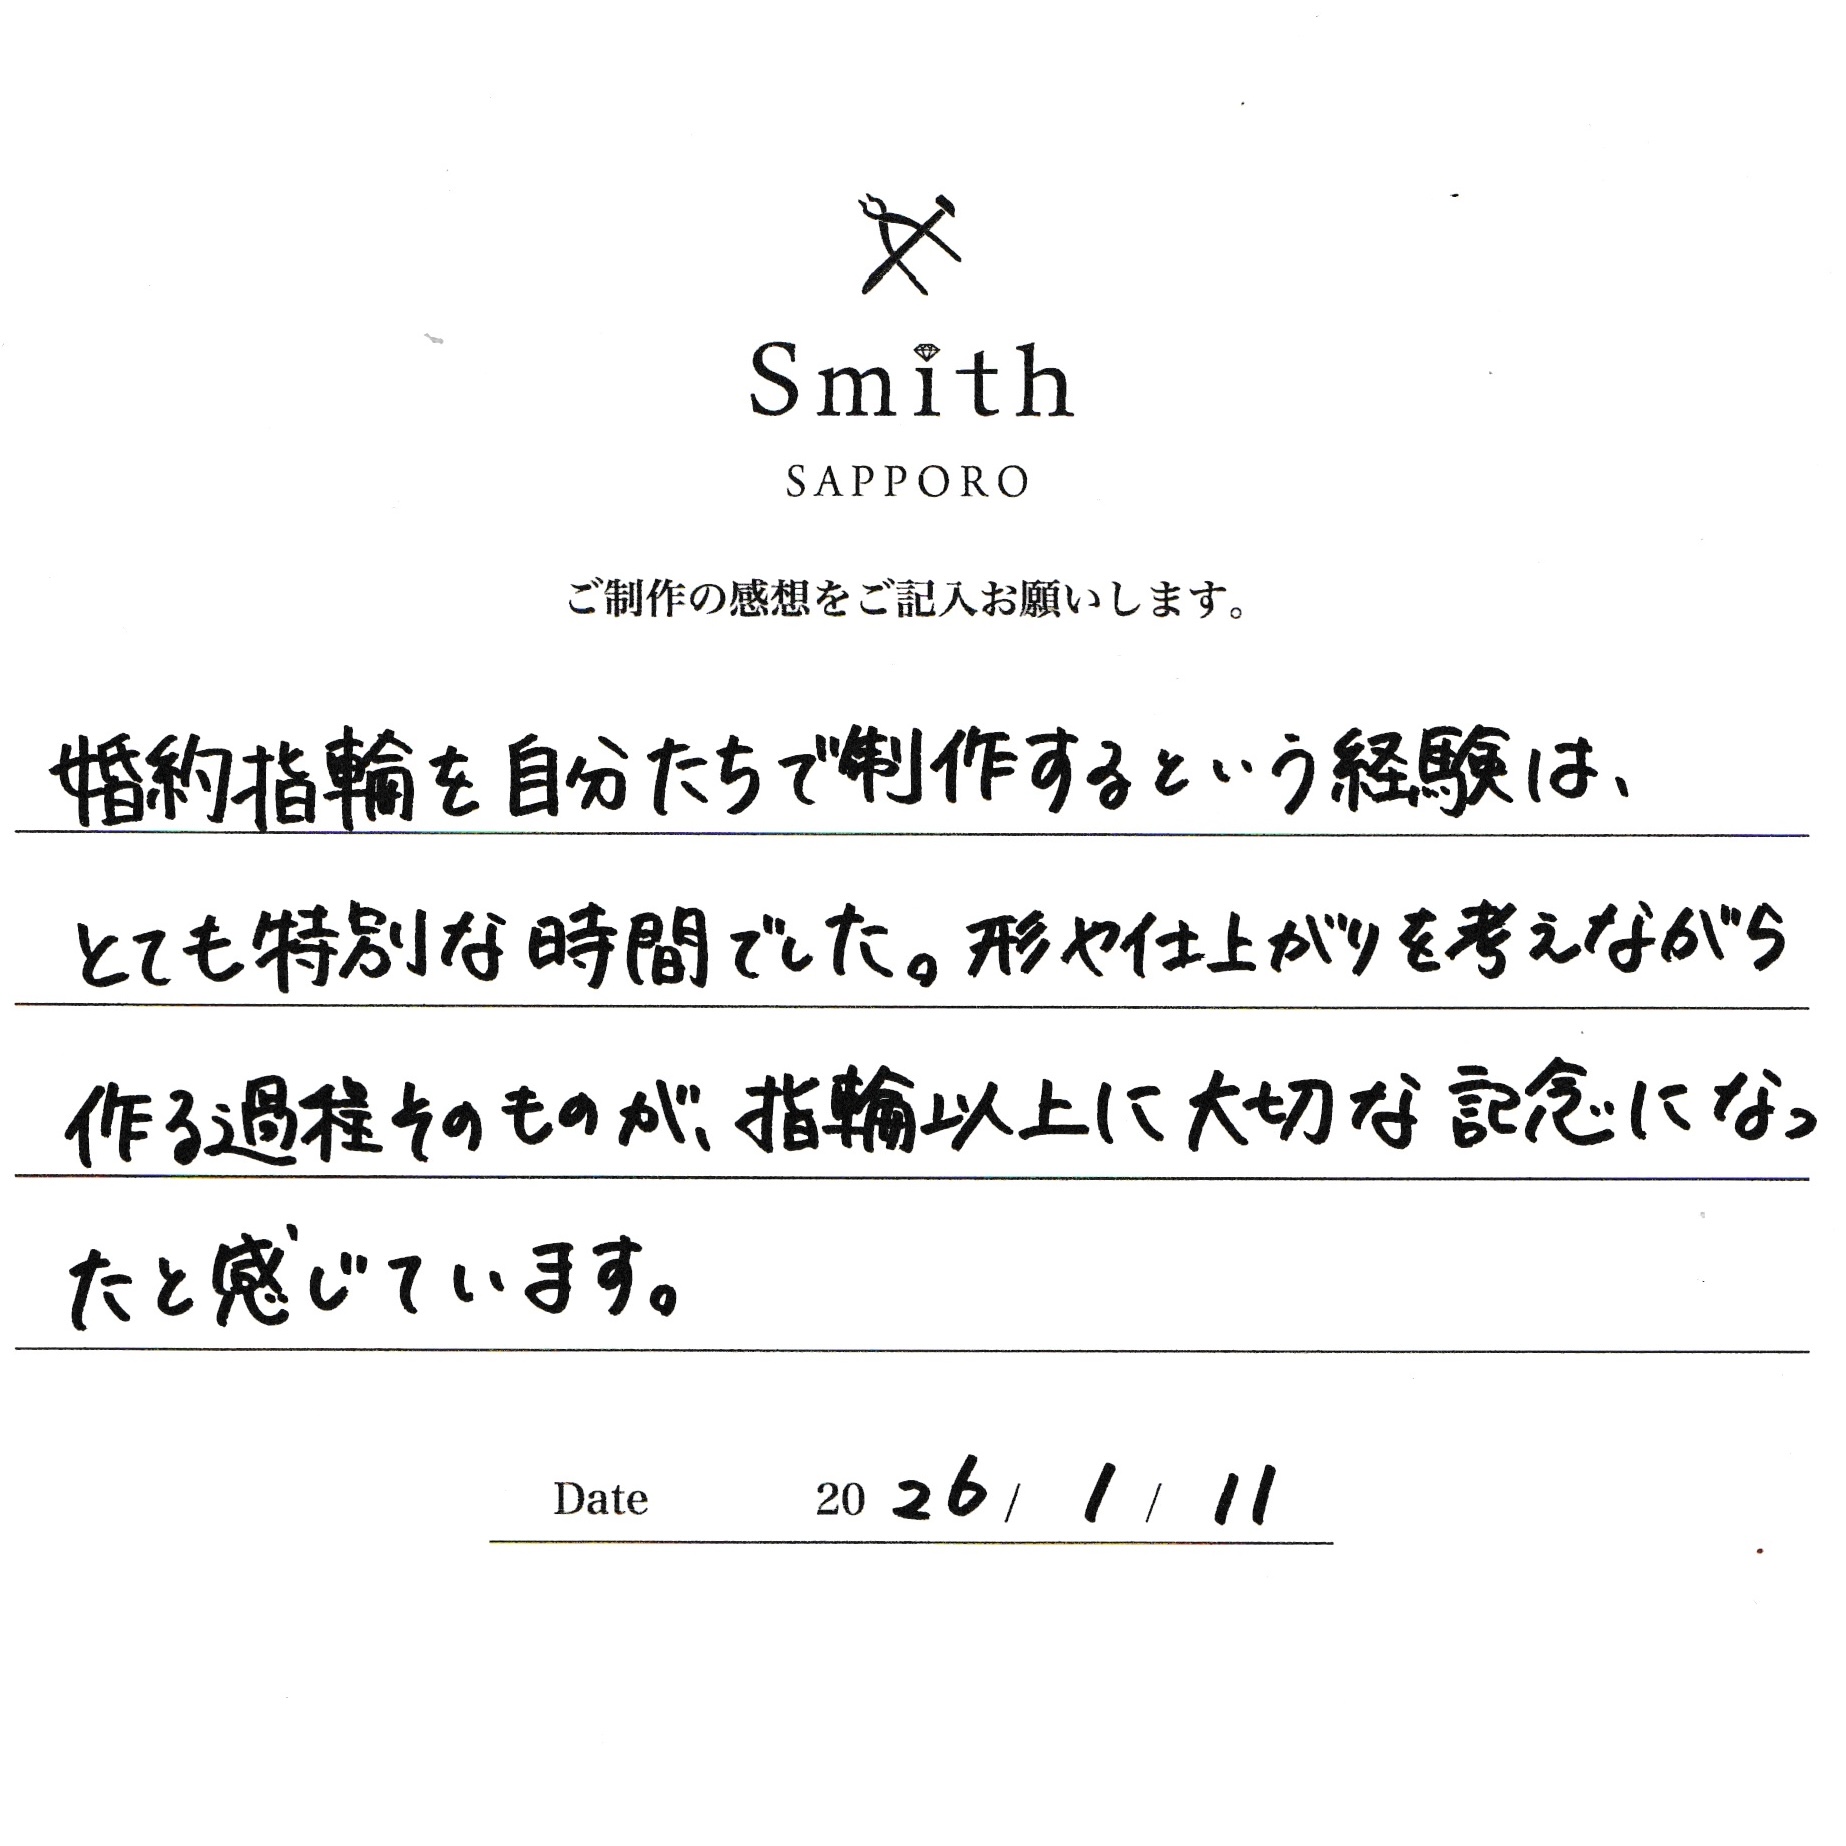 Smith
SAPPORO
ご制作の感想をご記入お願いします。
婚約指輪を自分たちで制作するという経験は、
とても特別な時間でした。形や仕上がりを考えながら
作る過程そのものが、指輪以上に大切な記念になっ
たと感じています。
Date 2026/1/11